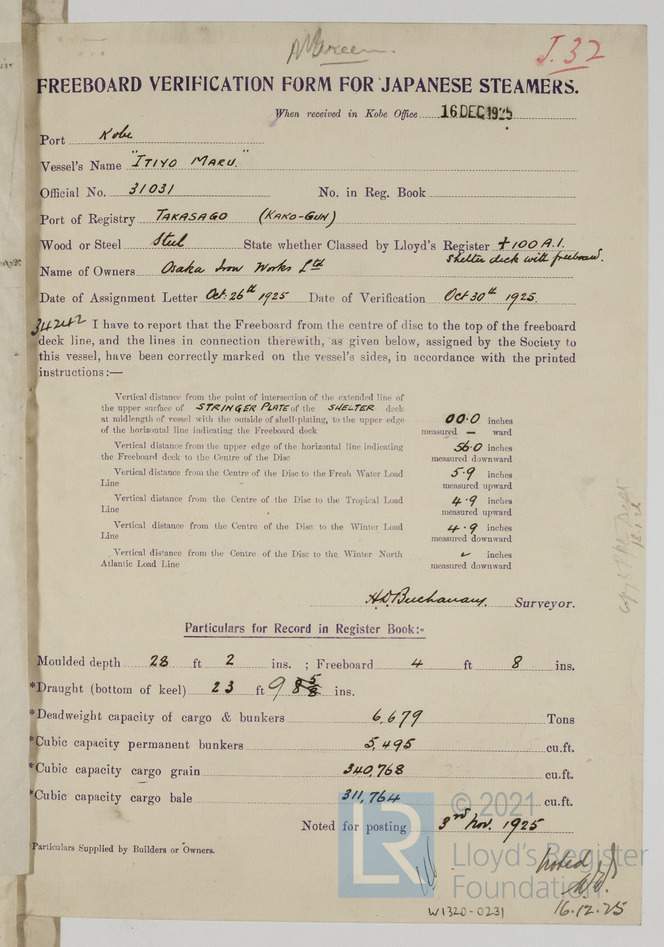 J.32
FREEBOARD VERIFICATION FORM FOR JAPANESE STEAMERS.
When received in Kobe Office 16 DEC 1925
Port Kobe
Vessel's Name "ITIYO MARU"
Official No. 31031 No. in Reg. Book
Port of Registry TAKASAGO (KAKO-GUN)
Wood or Steel Steel State whether Classed by Lloyd's Register +100 A.1.
shelter deck with freeboard.
Name of Owners Osaka Iron Works Ltd
Date of Assignment Letter Oct. 26th 1925 Date of Verification Oct 30th 1925.
34242 I have to report that the Freeboard from the centre of disc to the top of the freeboard
deck line, and the lines in connection therewith, as given below, assigned by the Society to
this vessel, have been correctly marked on the vessel's sides, in accordance with the printed
instructions:—
Vertical distance from the point of intersection of the extended line of
the upper surface of STRINGER PLATE of the SHELTER deck
at midlength of vessel with the outside of shell-plating, to the upper edge 00.0 inches
of the horizontal line indicating the Freeboard deck measured — ward
Vertical distance from the upper edge of the horizontal line indicating 56.0 inches
the Freeboard deck to the Centre of the Disc measured downward
Vertical distance from the Centre of the Disc to the Fresh Water Load 5.9 inches
Line measured upward
Vertical distance from the Centre of the Disc to the Tropical Load 4.9 inches
Line measured upward
Vertical distance from the Centre of the Disc to the Winter Load 4.9 inches
Line measured downward
Vertical distance from the Centre of the Disc to the Winter North inches
Atlantic Load Line measured downward
H.D. Buchanan. Surveyor.
Particulars for Record in Register Book:-
Moulded depth 28 ft 2 ins. ; Freeboard 4 ft 8 ins.
*Draught (bottom of keel) 23 ft 9 ins.
*Deadweight capacity of cargo & bunkers 6,679 Tons
*Cubic capacity permanent bunkers 5,495 cu.ft.
*Cubic capacity cargo grain 340,768 cu.ft.
*Cubic capacity cargo bale 311,764 cu.ft.
Noted for posting 3rd Nov. 1925
*Particulars Supplied by Builders or Owners.
noted
16.12.25
W1320-0231
LR
© 2021
Lloyd's Register
Foundation